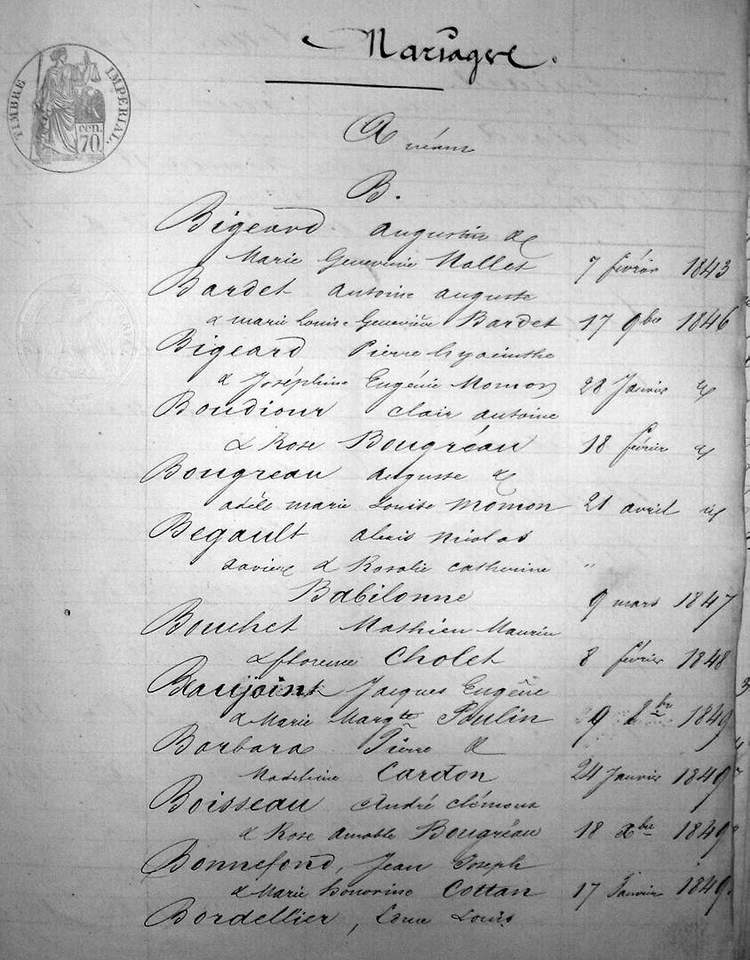 Mariages.
TIMBRE IMPERIAL.
cen. 70
A néant
B.
Bigeard Augustin &
Marie Geneviève Mallet 7 février 1843
Bardet antoine auguste
& marie Louise Geneviève Bardet 17 9bre 1846
Bigeard Pierre hyacinthe
& Joséphine Eugénie Momon 28 Janvier
Boudiour Clair antoine
& Rose Bougréau 18 février
Bougreau auguste &
adèle marie Louise Momon 21 avril
Begault alexis Nicolas
Xavier & Rosalie catherine "
Babilonne 9 mars 1847
Bouchet Mathieu Maurice
& florence Cholet 8 février 1848
Beaujoint Jacques Eugène
& Marie Margte Poulin 9 1849
Barbara Pierre &
Madeleine Cardon 24 Janvier 1849
Boisseau André Clément
& Rose Amable Bougréau 18 Xbre 1849
Bonnefond, Jean Joseph
& Marie honorine Cottan 17 Janvier 1849
Bordellier, Louis